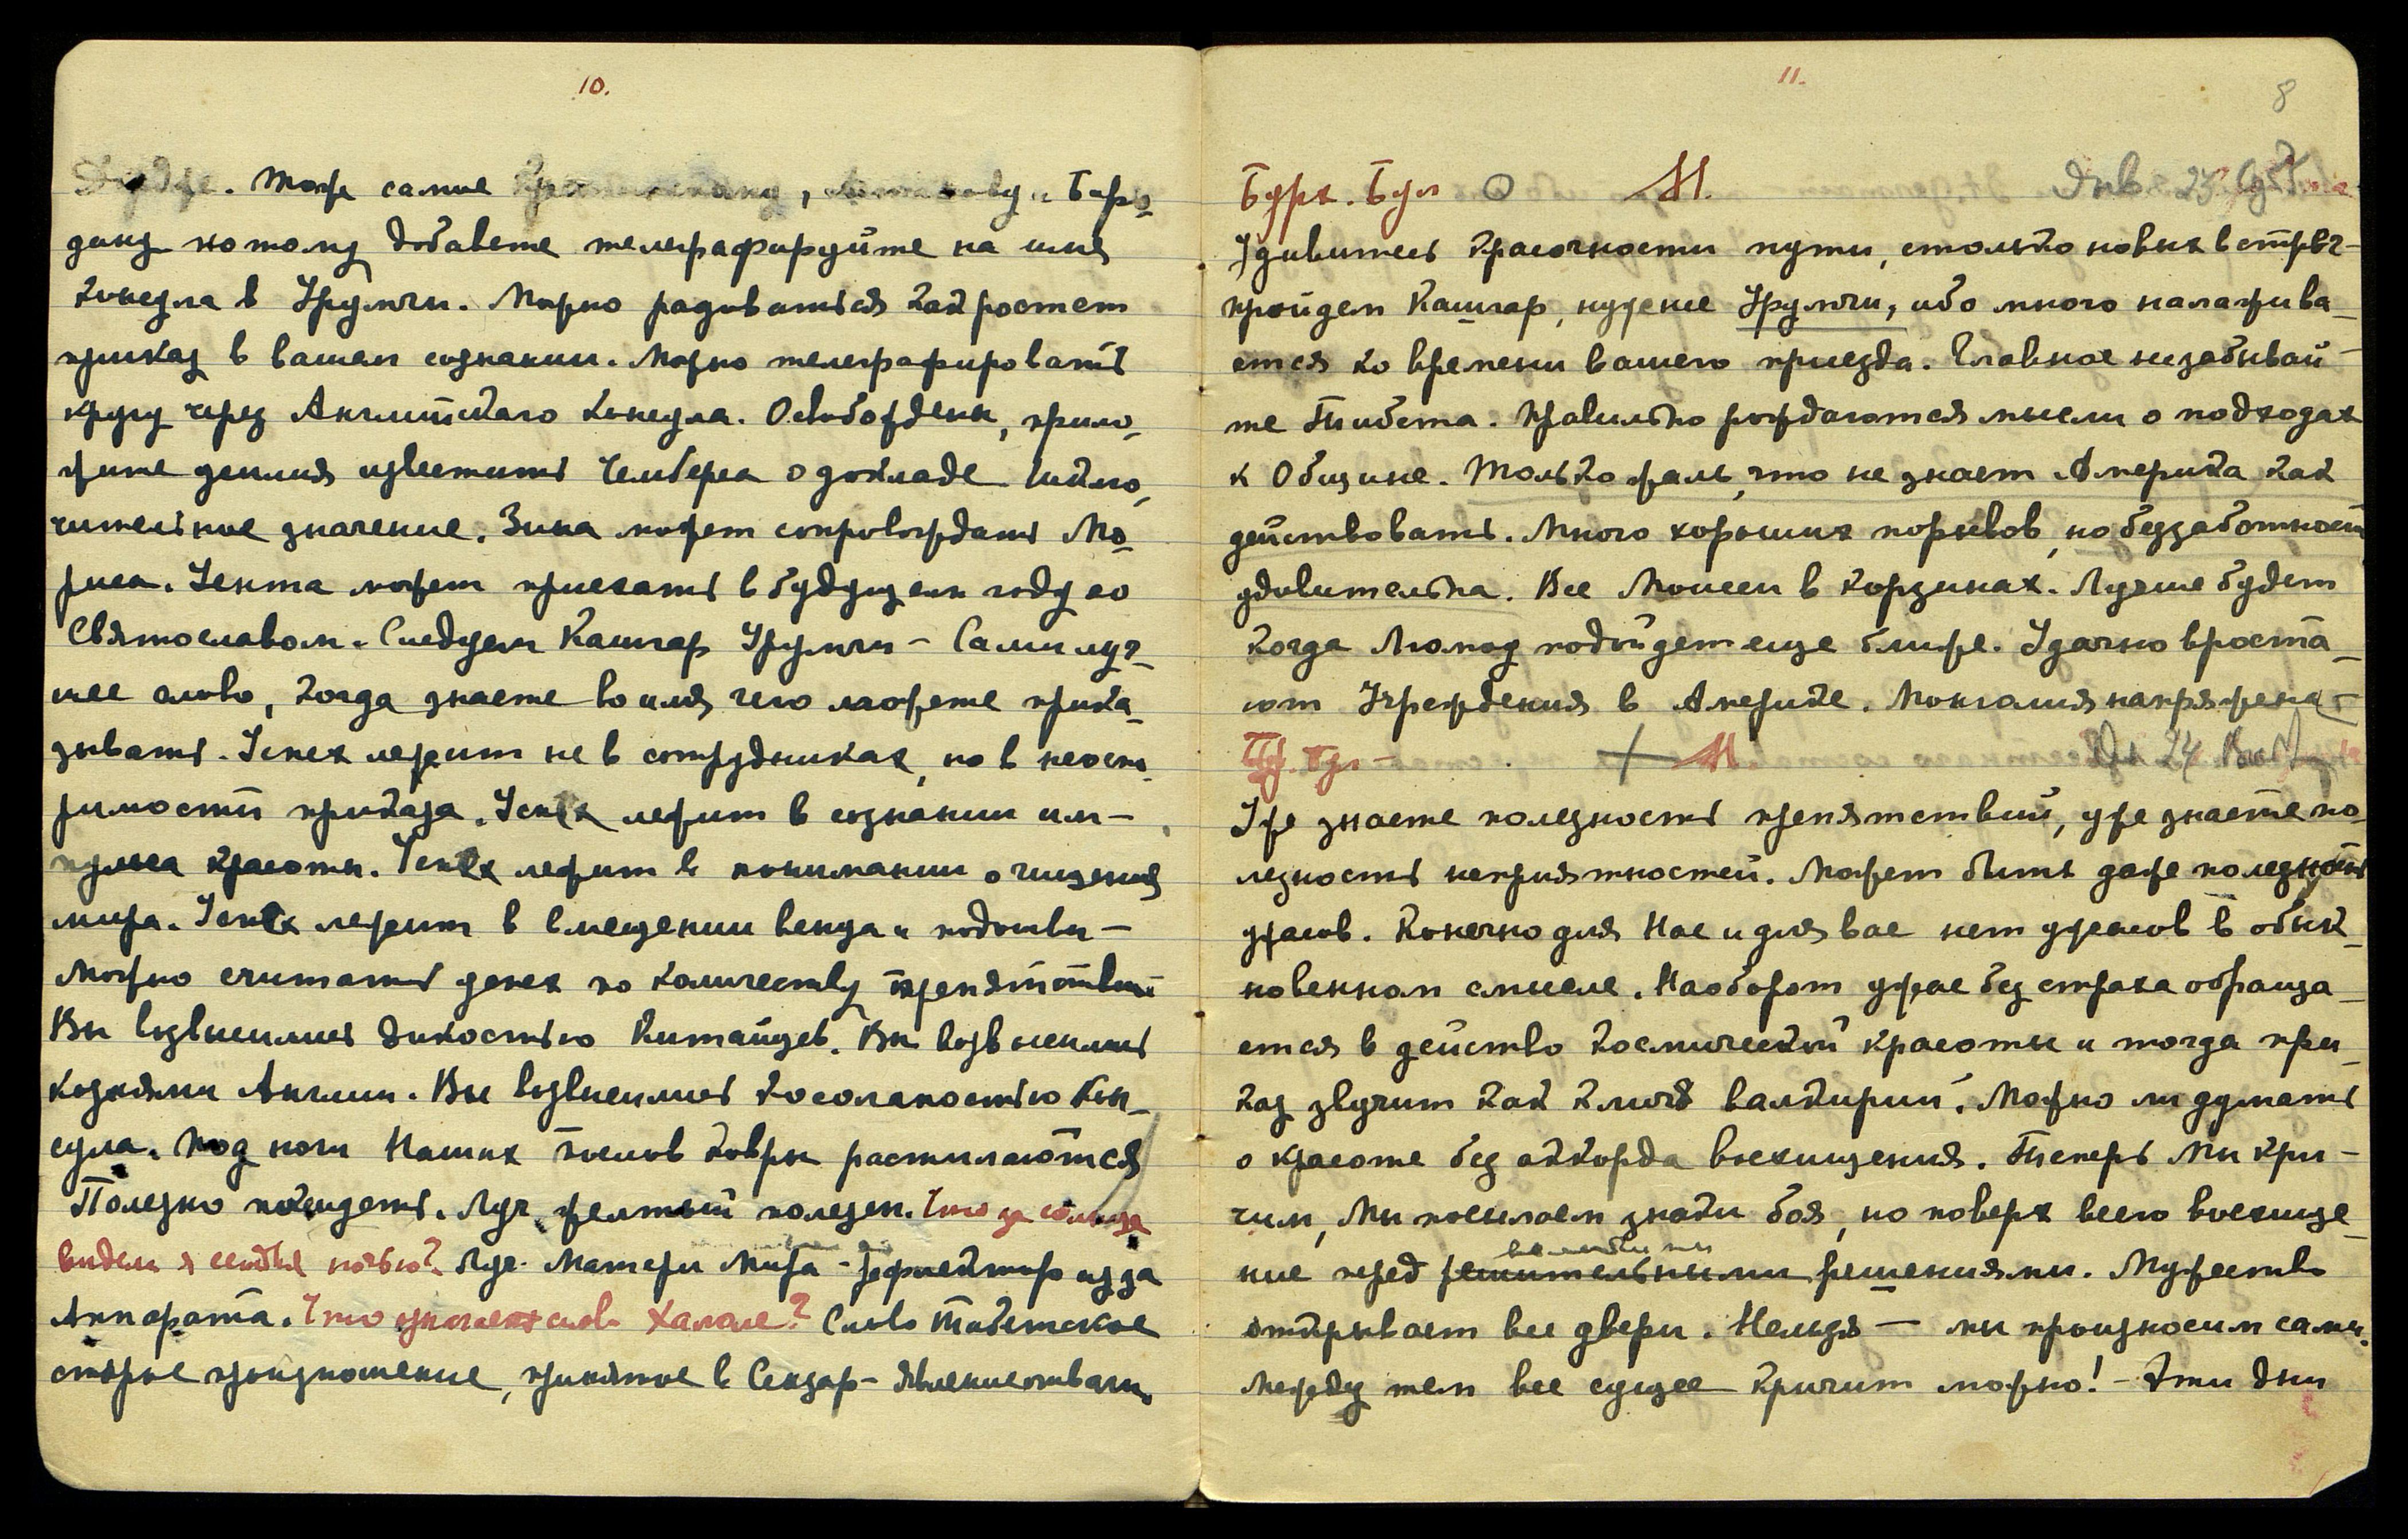 10.
Тоже самое , и Боро-
дину потому добавьте телеграфируйте на имя
консула в Урумчи. Можно радоваться как ростет
приказ в вашем сознании. Можно телеграфировать
кругу через Английского консула. Освобожден, прило-
жите усилия известить Чемберса о докладе. Исклю-
чительное значение. Зина может сопровождать Мо-
риса. Чента может приехать в будущем году со
Святославом. Следуем Кашгар Урумчи – Сами луч-
шее слово, когда знаете во имя чего можете прика-
зывать. Успех лежит не в сотрудниках, но в неоспо-
римости приказа. Успех лежит в сознании им-
пульса красоты. Успех лежит в понимании очищения
мира. Успех лежит в вмещении венца и подошвы –
Можно считать успех по количеству препятствий
Вы возвысились дикостью Китайцев. Вы возвысились
кознями Англии. Вы возвысились косолапостью Кон-
сула. Под ноги Наших послов ковры растилаются
Полезно победить. Луч желтый полезен. Что за солнце
видела я сегодня ночью? Луч Матери Мира – рефлектор из за
Аппарата. Что означает слово Халале? Слово Тибетское
старое произношение, принятое в Сенцар –
11.
8
Бурх. Бул М. Янв 23. Суб
Удивитесь красочности пути, столько новых встреч –
пройдем Кашгар, нужнее Урумчи, ибо много налажива-
ется ко времени вашего приезда. Главное незабывай-
те Тибета. Правильно рождаются мысли о подходах
к Общине. Только жаль, что не знает Америка как
действовать. Много хороших порывов, но беззаботность
удивительна. Все Моисеи в корзинах. Лучше будет
когда Люмоу подойдет еще ближе. Удачно вроста-
ют Учреждения в Америке. Монголия напряжена –
Бур. Бул – + М. Ян 24 Вос
Уже знаете полезность препятствий, уже знаете по-
лезность неприятностей. Может быть даже полезность
ужасов. Конечно для Нас и для вас нет ужасов в обык-
новенном смысле. Наоборот ужас без страха обраща-
ется в действо космической красоты и тогда при-
каз звучит как клич валкирий. Можно ли думать
о красоте без аккорда восхищения. Теперь Мы кри-
чим, Мы посылаем знаки боя, но поверх всего восхище-
великими
ние перед решительными решениями. Мужество
открывает все двери. Нельзя – мы произносим сами.
Между тем все сущее кричит можно! – Эти дни